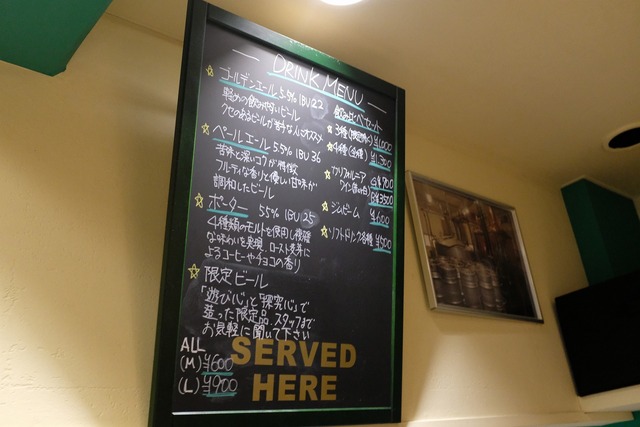 DRINK MENU
☆ゴールデンエール 5.5% IBU 22
軽めの飲みやすいビール
クセのあるビールが苦手な人にオススメ
☆ペールエール 5.5% IBU 36
苦味と深いコクが特徴
フルーティな香りと優しい甘味が
調和したビール
☆ポーター 5.5% IBU 25
4種類のモルトを使用し複雑
な味わいを実現。ロースト麦芽に
よるコーヒーやチョコの香り
☆限定ビール
「遊び心」と「探究心」で
造った限定品 スタッフまで
お気軽に聞いて下さい
ALL
(M) ¥600
(L) ¥900
飲み比べセット
☆3種 ¥1,000
☆4種 ¥1,300
☆カリフォルニア
ワイン G ¥700
B ¥3500
☆ジムビーム
¥600
☆ソフトドリンク各種
SERVED
HERE